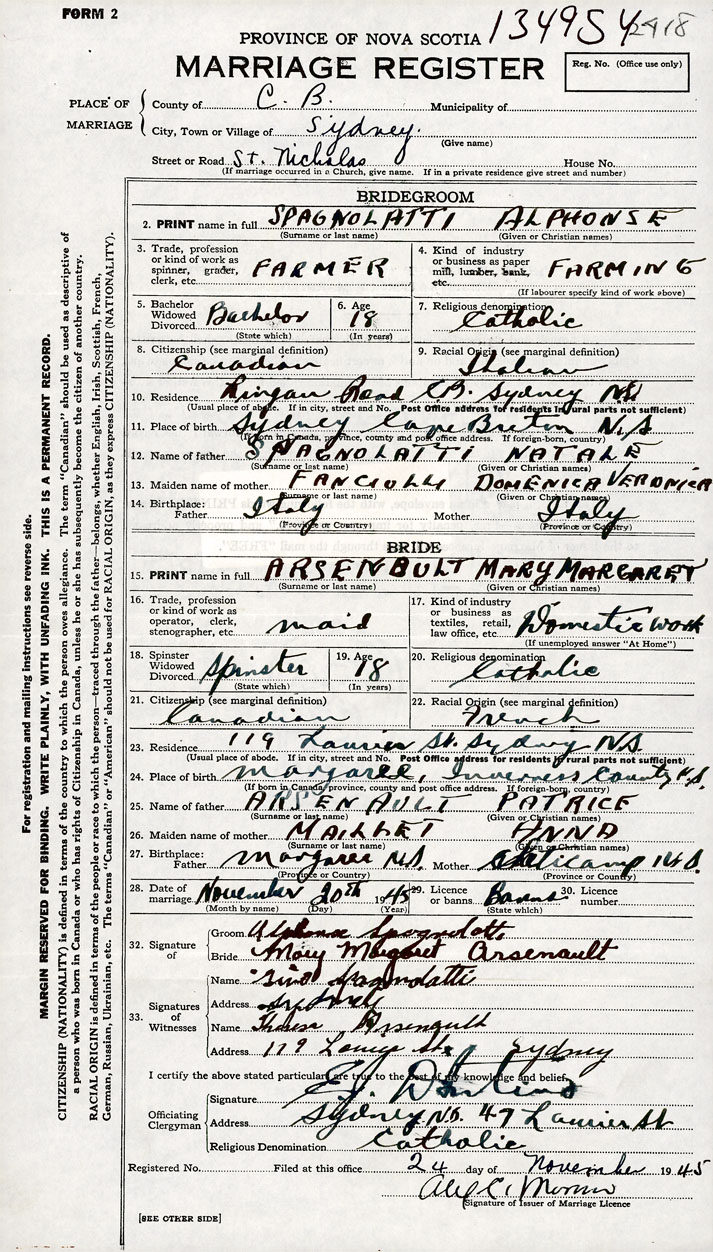 FORM 2
134954 2918
PROVINCE OF NOVA SCOTIA
MARRIAGE REGISTER
Reg. No. (Office use only)
PLACE OF MARRIAGE
County of C. B. Municipality of
City, Town or Village of Sydney.
(Give name)
Street or Road St. Nicholas House No.
(If marriage occurred in a Church, give name. If in a private residence give street and number)
BRIDEGROOM
2. PRINT name in full SPAGNOLATTI ALPHONSE
(Surname or last name) (Given or Christian names)
3. Trade, profession or kind of work as spinner, grader, clerk, etc. FARMER
4. Kind of industry or business as paper mill, lumber, bank, etc. FARMING
(If labourer specify kind of work above)
5. Bachelor Widowed Divorced Bachelor
(State which)
6. Age 18
(In years)
7. Religious denomination Catholic
8. Citizenship (see marginal definition) Canadian
9. Racial Origin (see marginal definition) Italian
10. Residence Lingan Road C.B. Sydney N.S.
(Usual place of abode. If in city, street and No. Post Office address for residents in rural parts not sufficient)
11. Place of birth Sydney Cape Breton N.S
(If born in Canada, province, county and post office address. If foreign-born, country)
12. Name of father SPAGNOLATTI NATALE
(Surname or last name) (Given or Christian names)
13. Maiden name of mother FANCIULLI DOMENICA VERONICA
(Surname or last name) (Given or Christian names)
14. Birthplace: Father Italy Mother Italy
(Province or Country) (Province or Country)
BRIDE
15. PRINT name in full ARSENBULT MARY MARGARET
(Surname or last name) (Given or Christian names)
16. Trade, profession or kind of work as operator, clerk, stenographer, etc. maid
17. Kind of industry or business as textiles, retail, law office, etc. Domestic Work
(If unemployed answer "At Home")
18. Spinster Widowed Divorced Spinster
(State which)
19. Age 18
(In years)
20. Religious denomination Catholic
21. Citizenship (see marginal definition) Canadian
22. Racial Origin (see marginal definition) French
23. Residence 119 Laurier St. Sydney N.S.
(Usual place of abode. If in city, street and No. Post Office address for residents in rural parts not sufficient)
24. Place of birth Margaree, Inverness County N.S.
(If born in Canada, province, county and post office address. If foreign-born, country)
25. Name of father ARSENAULT PATRICE
(Surname or last name) (Given or Christian names)
26. Maiden name of mother MAILLET ANNA
(Surname or last name) (Given or Christian names)
27. Birthplace: Father Margaree N.S. Mother Cheticamp N.S.
(Province or Country) (Province or Country)
28. Date of marriage November 20th 1945
(Month by name) (Day) (Year)
29. Licence or banns Banns
(State which)
30. Licence number
32. Signature of
Groom Alphonse Spagnolatti
Bride Mary Margaret Arsenault
33. Signatures of Witnesses
Name Gino Spagnolatti
Address
Name Theresa Arsenault
Address 119 Laurier St. Sydney
I certify the above stated particulars are true to the best of my knowledge and belief.
Officiating Clergyman
Signature
Address Sydney No. 47 Laurier St
Religious Denomination Catholic
Registered No. Filed at this office 24 day of November 1945
Signature of Issuer of Marriage Licence
[SEE OTHER SIDE]
For registration and mailing instructions see reverse side.
MARGIN RESERVED FOR BINDING. WRITE PLAINLY, WITH UNFADING INK. THIS IS A PERMANENT RECORD.
CITIZENSHIP (NATIONALITY) is defined in terms of the country to which the person owes allegiance. The term "Canadian" should be used as descriptive of
a person who was born in Canada or who has rights of Citizenship in Canada, unless he or she has subsequently become the citizen of another country.
RACIAL ORIGIN is defined in terms of the people or race to which the person—traced through the father—belongs, whether English, Irish, Scottish, French,
German, Russian, Ukrainian, etc. The terms "Canadian" or "American" should not be used for RACIAL ORIGIN, as they express CITIZENSHIP (NATIONALITY).